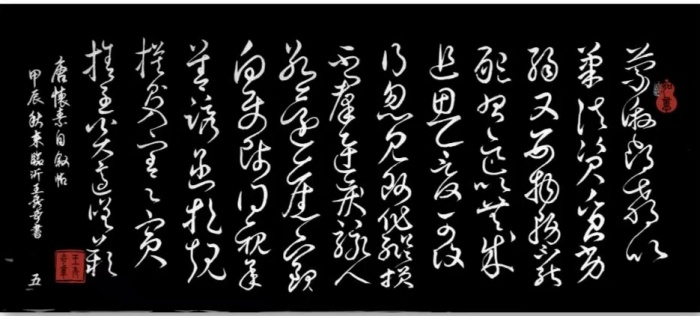 蒙激昂教以
筆法資質劣
弱又嬰物務不能
懇習迄以無成
追思一言何可復
得忽見師作縱橫
不羣迅疾駭人
若還舊觀
向使師得親承
善誘函挹規
模則入室之賓
捨子奚適嗟歎
唐懷素自叙帖
甲辰秋末臨沂王秀奇書
五